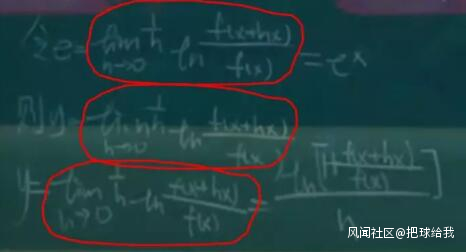 令e = lim h→0 1/h ln f(x+hx)/f(x) = e^x
则y = lim h→0 1/h ln f(x+hx)/f(x)
y = lim h→0 1/h ln f(x+hx)/f(x) = ln[1+ f(x+hx)/f(x)]/h
风闻社区@把球给我